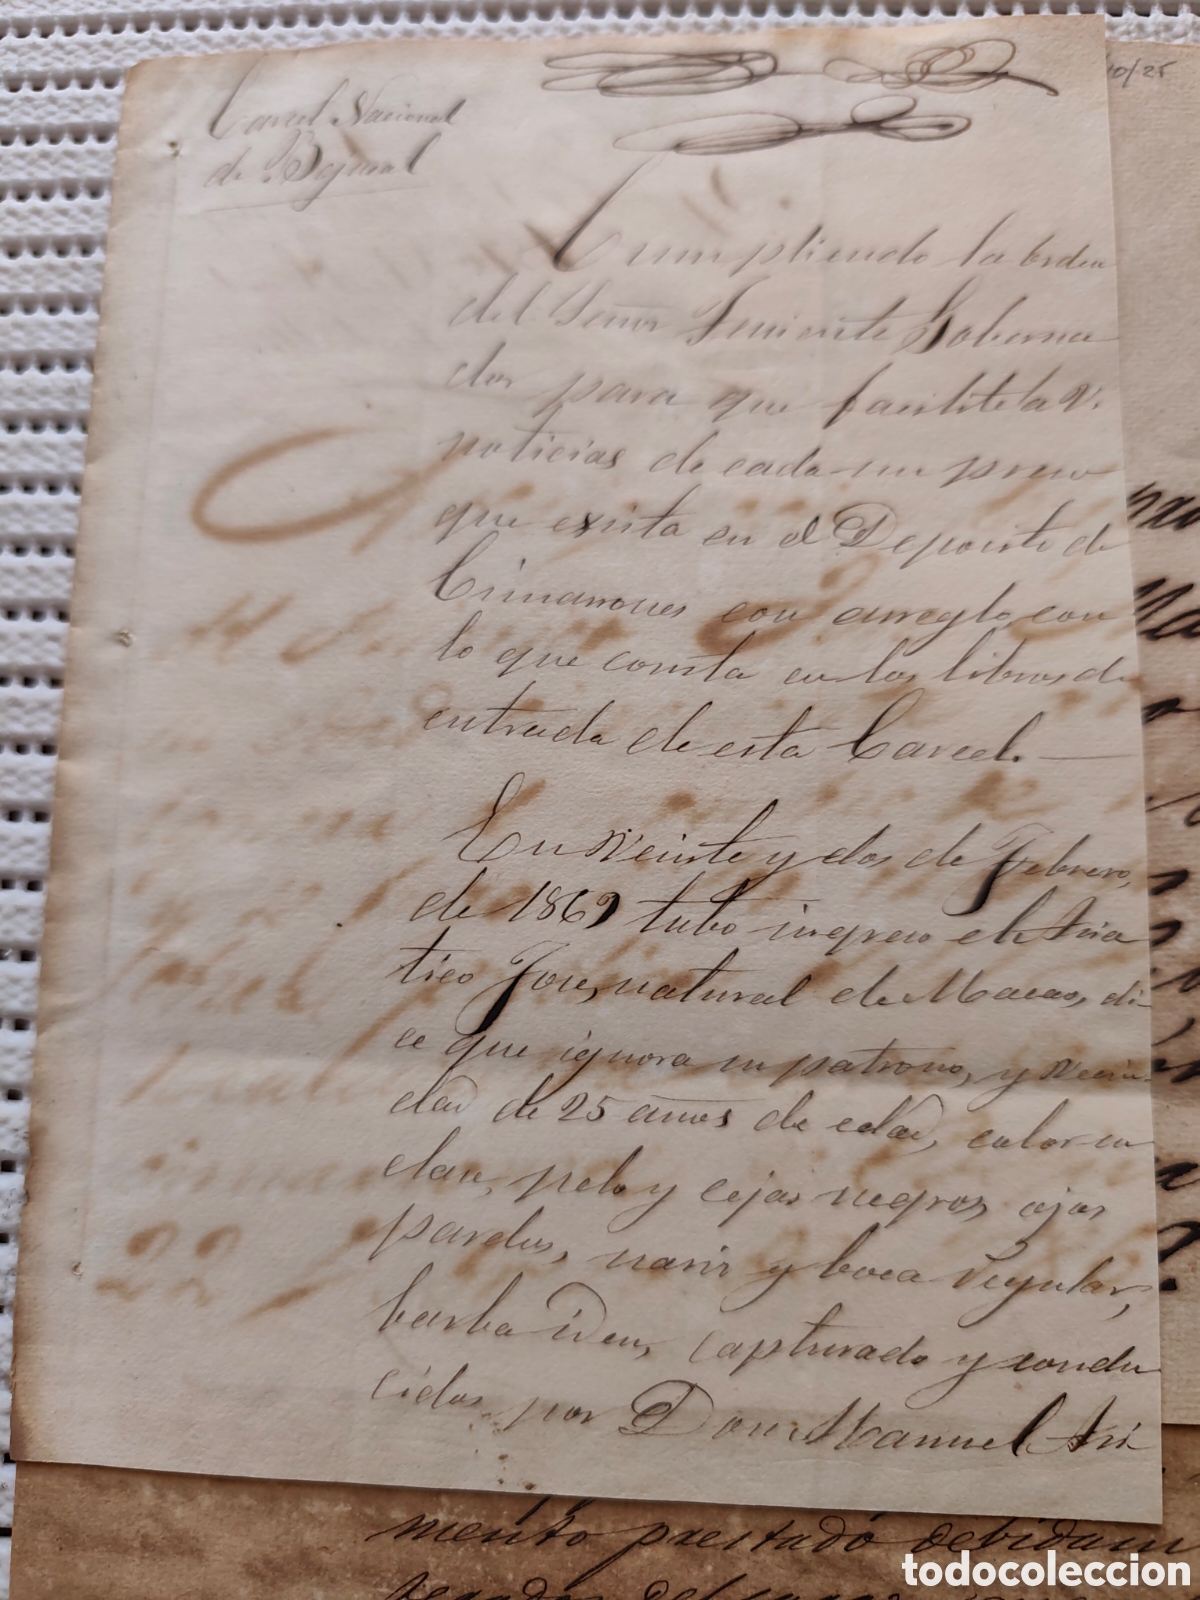 10/25
Carcel Nacional
de Bejucal
Cumpliendo la orden
del Señor Teniente Goberna
dor para que facilite las
noticias de cada un preso
que exista en el Deposito de
Cimarrones con arreglo con
lo que consta en los libros de
entrada de esta Carcel. —
En Veinte y dos de Febrero,
de 1869 tubo ingreso el Asia
tico José, natural de Macao, di-
ce que ignora su patrono, y Vecin-
dad de 25 años de edad, color su
clase, pelo y cejas negros, ojos
pardos, nariz y boca regular,
barba idem, capturado y condu
cidos por Don Manuel Ari
mento prestado debidam
todocoleccion